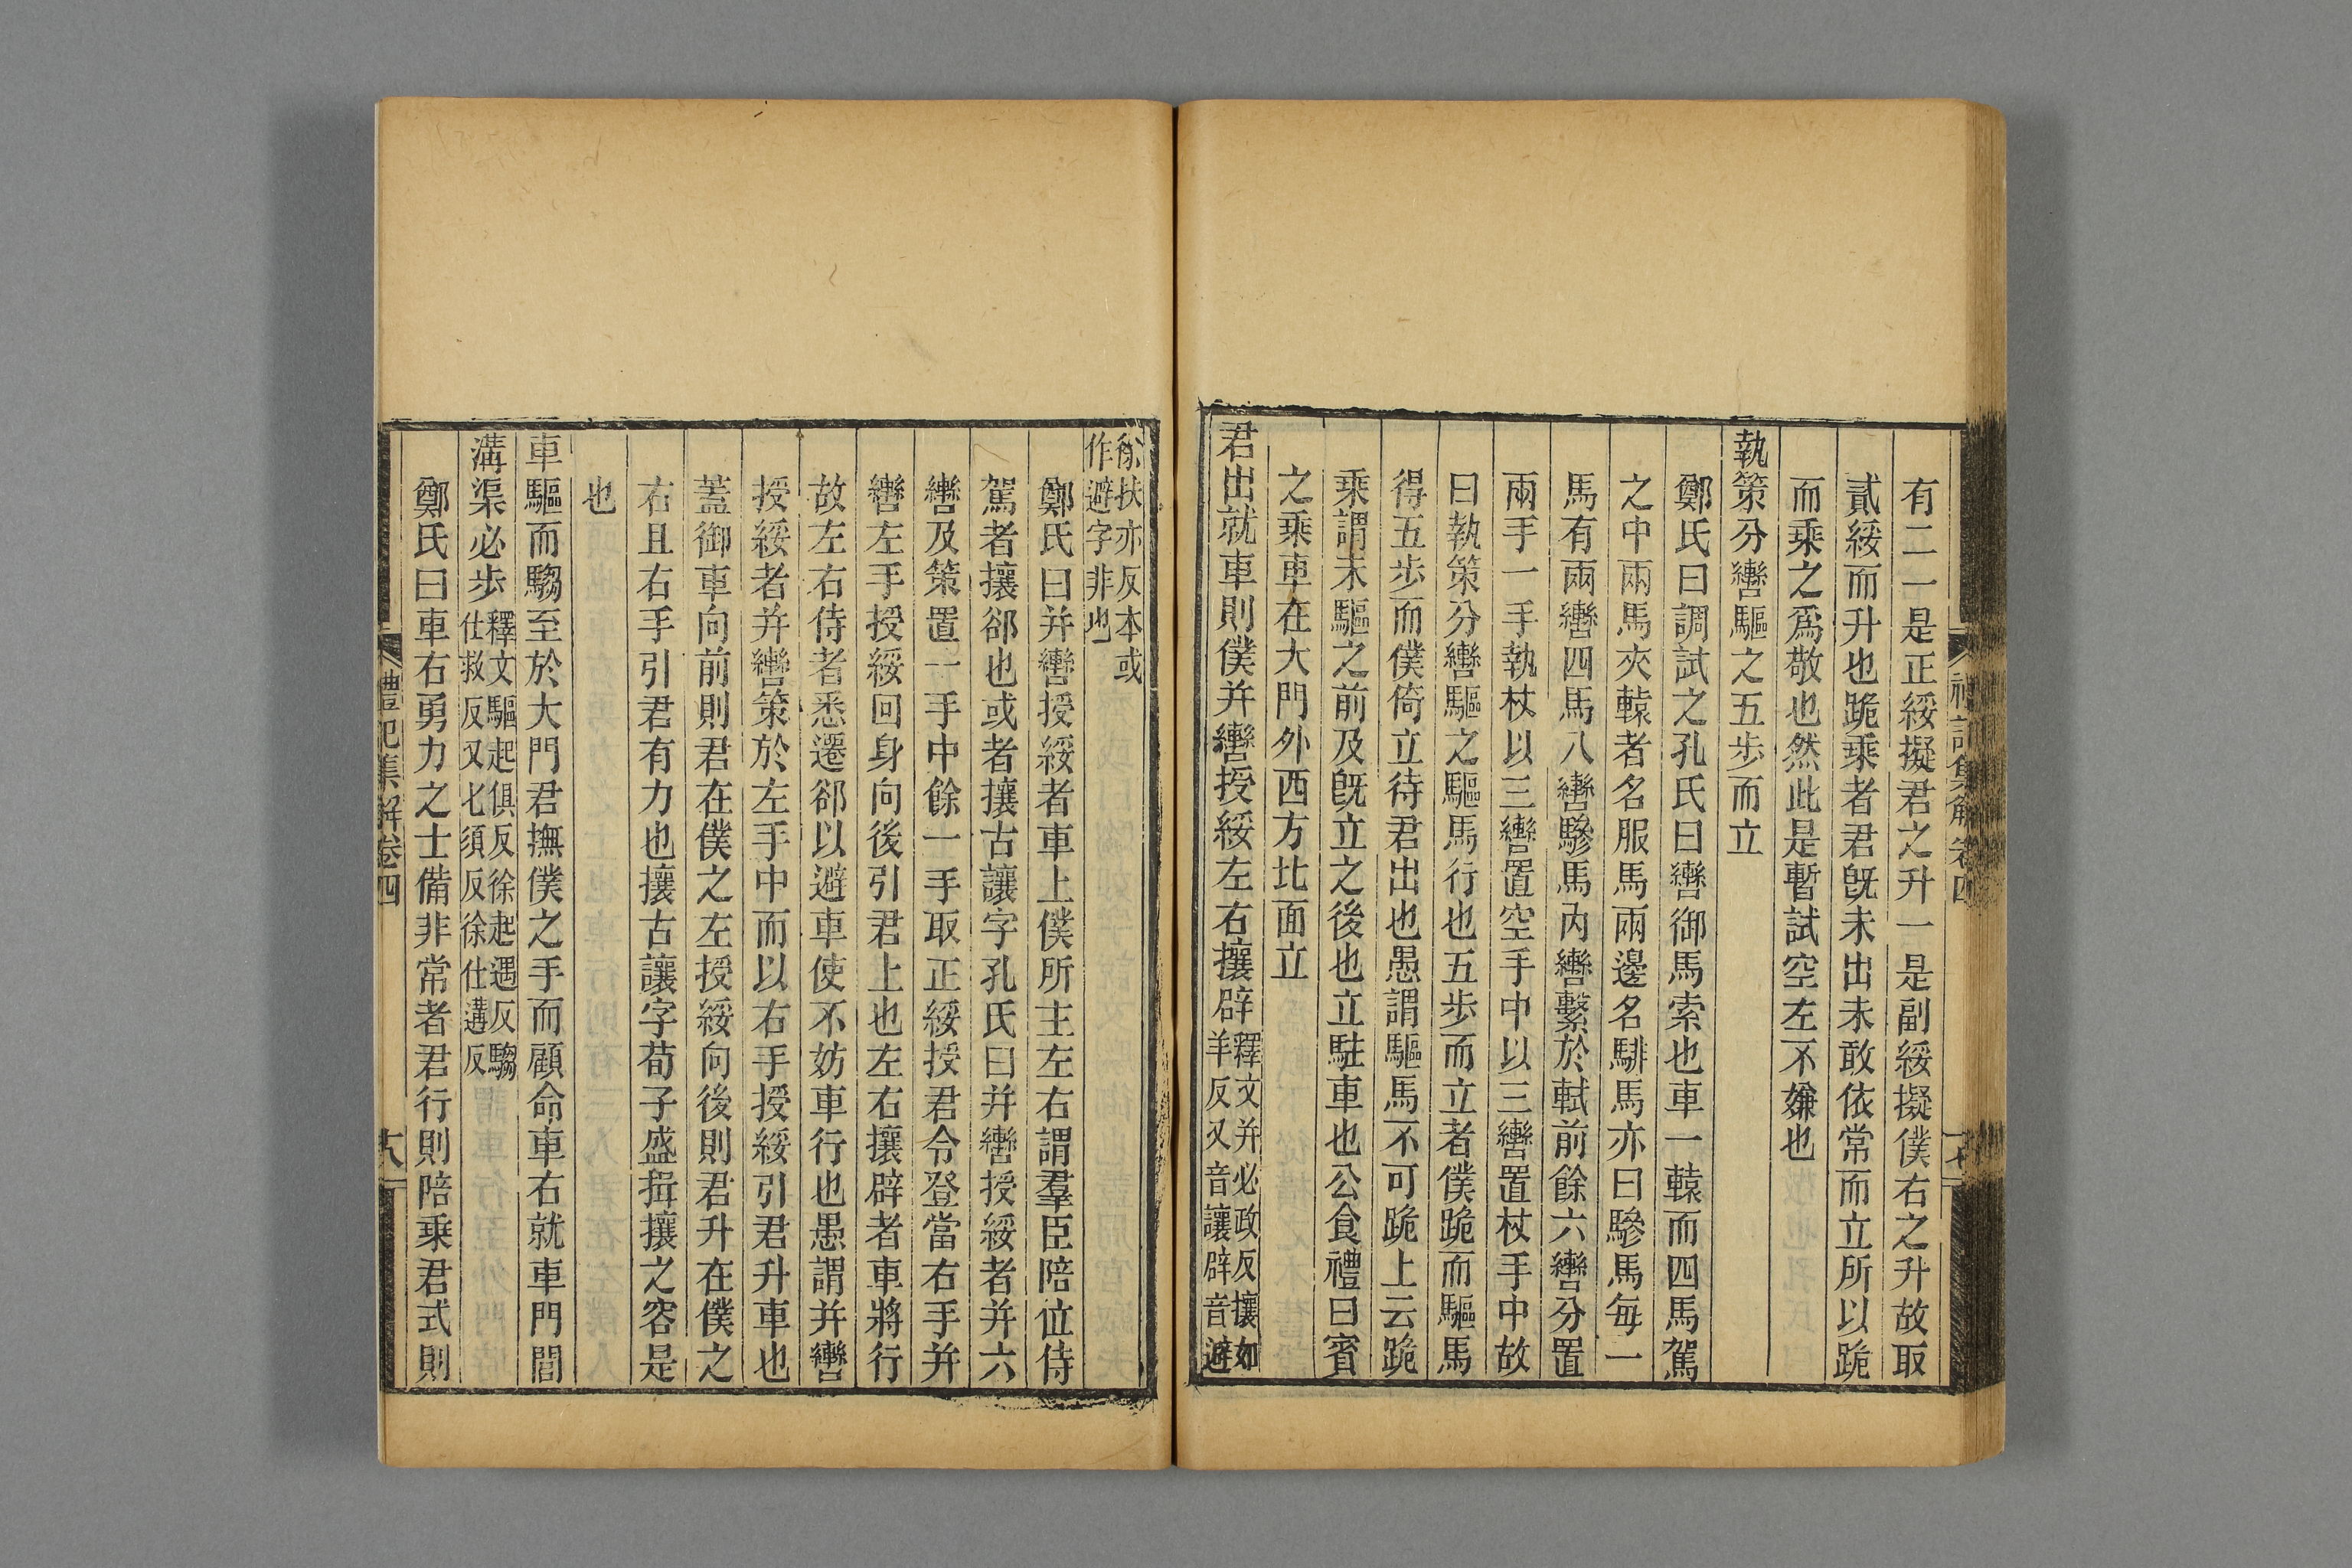 有二一是正綏擬君之升一是副綏擬僕右之升故取
貳綏而升也跪乘者君旣未出未敢依常而立所以跪
而乘之爲敬也然此是暫試空左不嫌也
執策分轡驅之五步而立
鄭氏曰調試之孔氏曰轡御馬索也車一轅而四馬駕
之中兩馬夾轅者名服馬兩邊名騑馬亦曰驂馬每一
馬有兩轡四馬八轡驂馬內轡繫於軾前餘六轡分置
兩手一手執杖以三轡置空手中以三轡置杖手中故
曰執策分轡驅之驅馬行也五步而立者僕跪而驅馬
得五步而僕倚立待君出也愚謂驅馬不可跪上云跪
乘謂未驅之前及旣立之後也立駐車也公食禮曰賓
之乘車在大門外西方北面立
君出就車則僕并轡授綏左右攘辟釋文并必政反攘如
羊反又音讓辟音避
徐扶亦反本或
作避字非也
鄭氏曰并轡授綏者車上僕所主左右謂羣臣陪位侍
駕者攘郤也或者攘古讓字孔氏曰并轡授綏者并六
轡及策置一手中餘一手取正綏授君令登當右手并
轡左手授綏回身向後引君上也左右攘辟者車將行
故左右侍者悉遷郤以避車使不妨車行也愚謂并轡
授綏者并轡策於左手中而以右手授綏引君升車也
蓋御車向前則君在僕之左授綏向後則君升在僕之
右且右手引君有力也攘古讓字荀子盛揖攘之容是
也
車驅而騶至於大門君撫僕之手而顧命車右就車門閭
溝渠必步釋文驅起俱反徐起遇反騶
仕救反又七須反徐仕溝反
鄭氏曰車右勇力之士備非常者君行則陪乘君式則
禮記集解卷四
十八